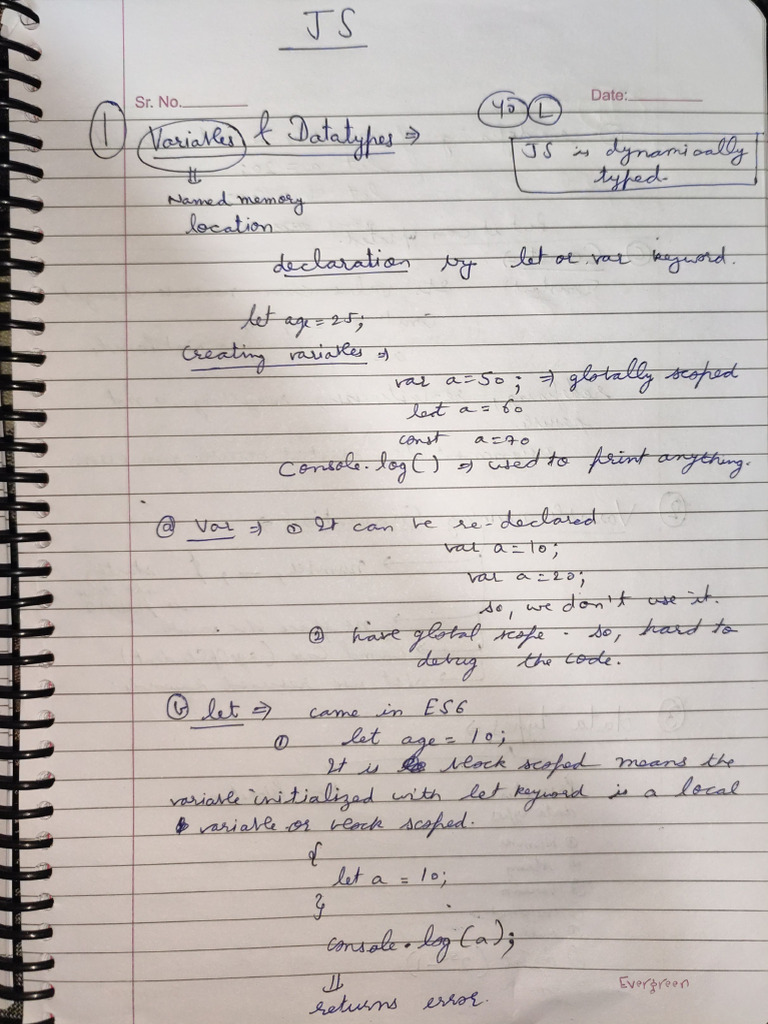 JS
Sr. No. Date:
① Variables & Datatypes ⇒
JS is dynamically
typed.
⇓
Named memory
location
declaration by let or var keyword.
let age = 25;
Creating variables ⇒
var a = 50; ⇒ globally scoped
let a = 60
const a = 70
Console.log() ⇒ used to print anything.
ⓐ Var ⇒ ① It can be re-declared
var a = 10;
var a = 20;
so, we don't use it.
② have global scope. so, hard to
debug the code.
ⓑ let ⇒ came in ES6
① let age = 10;
It is block scoped means the
variable initialized with let keyword is a local
variable or block scoped.
{
let a = 10;
}
console.log(a);
⇓
returns error.
Evergreen